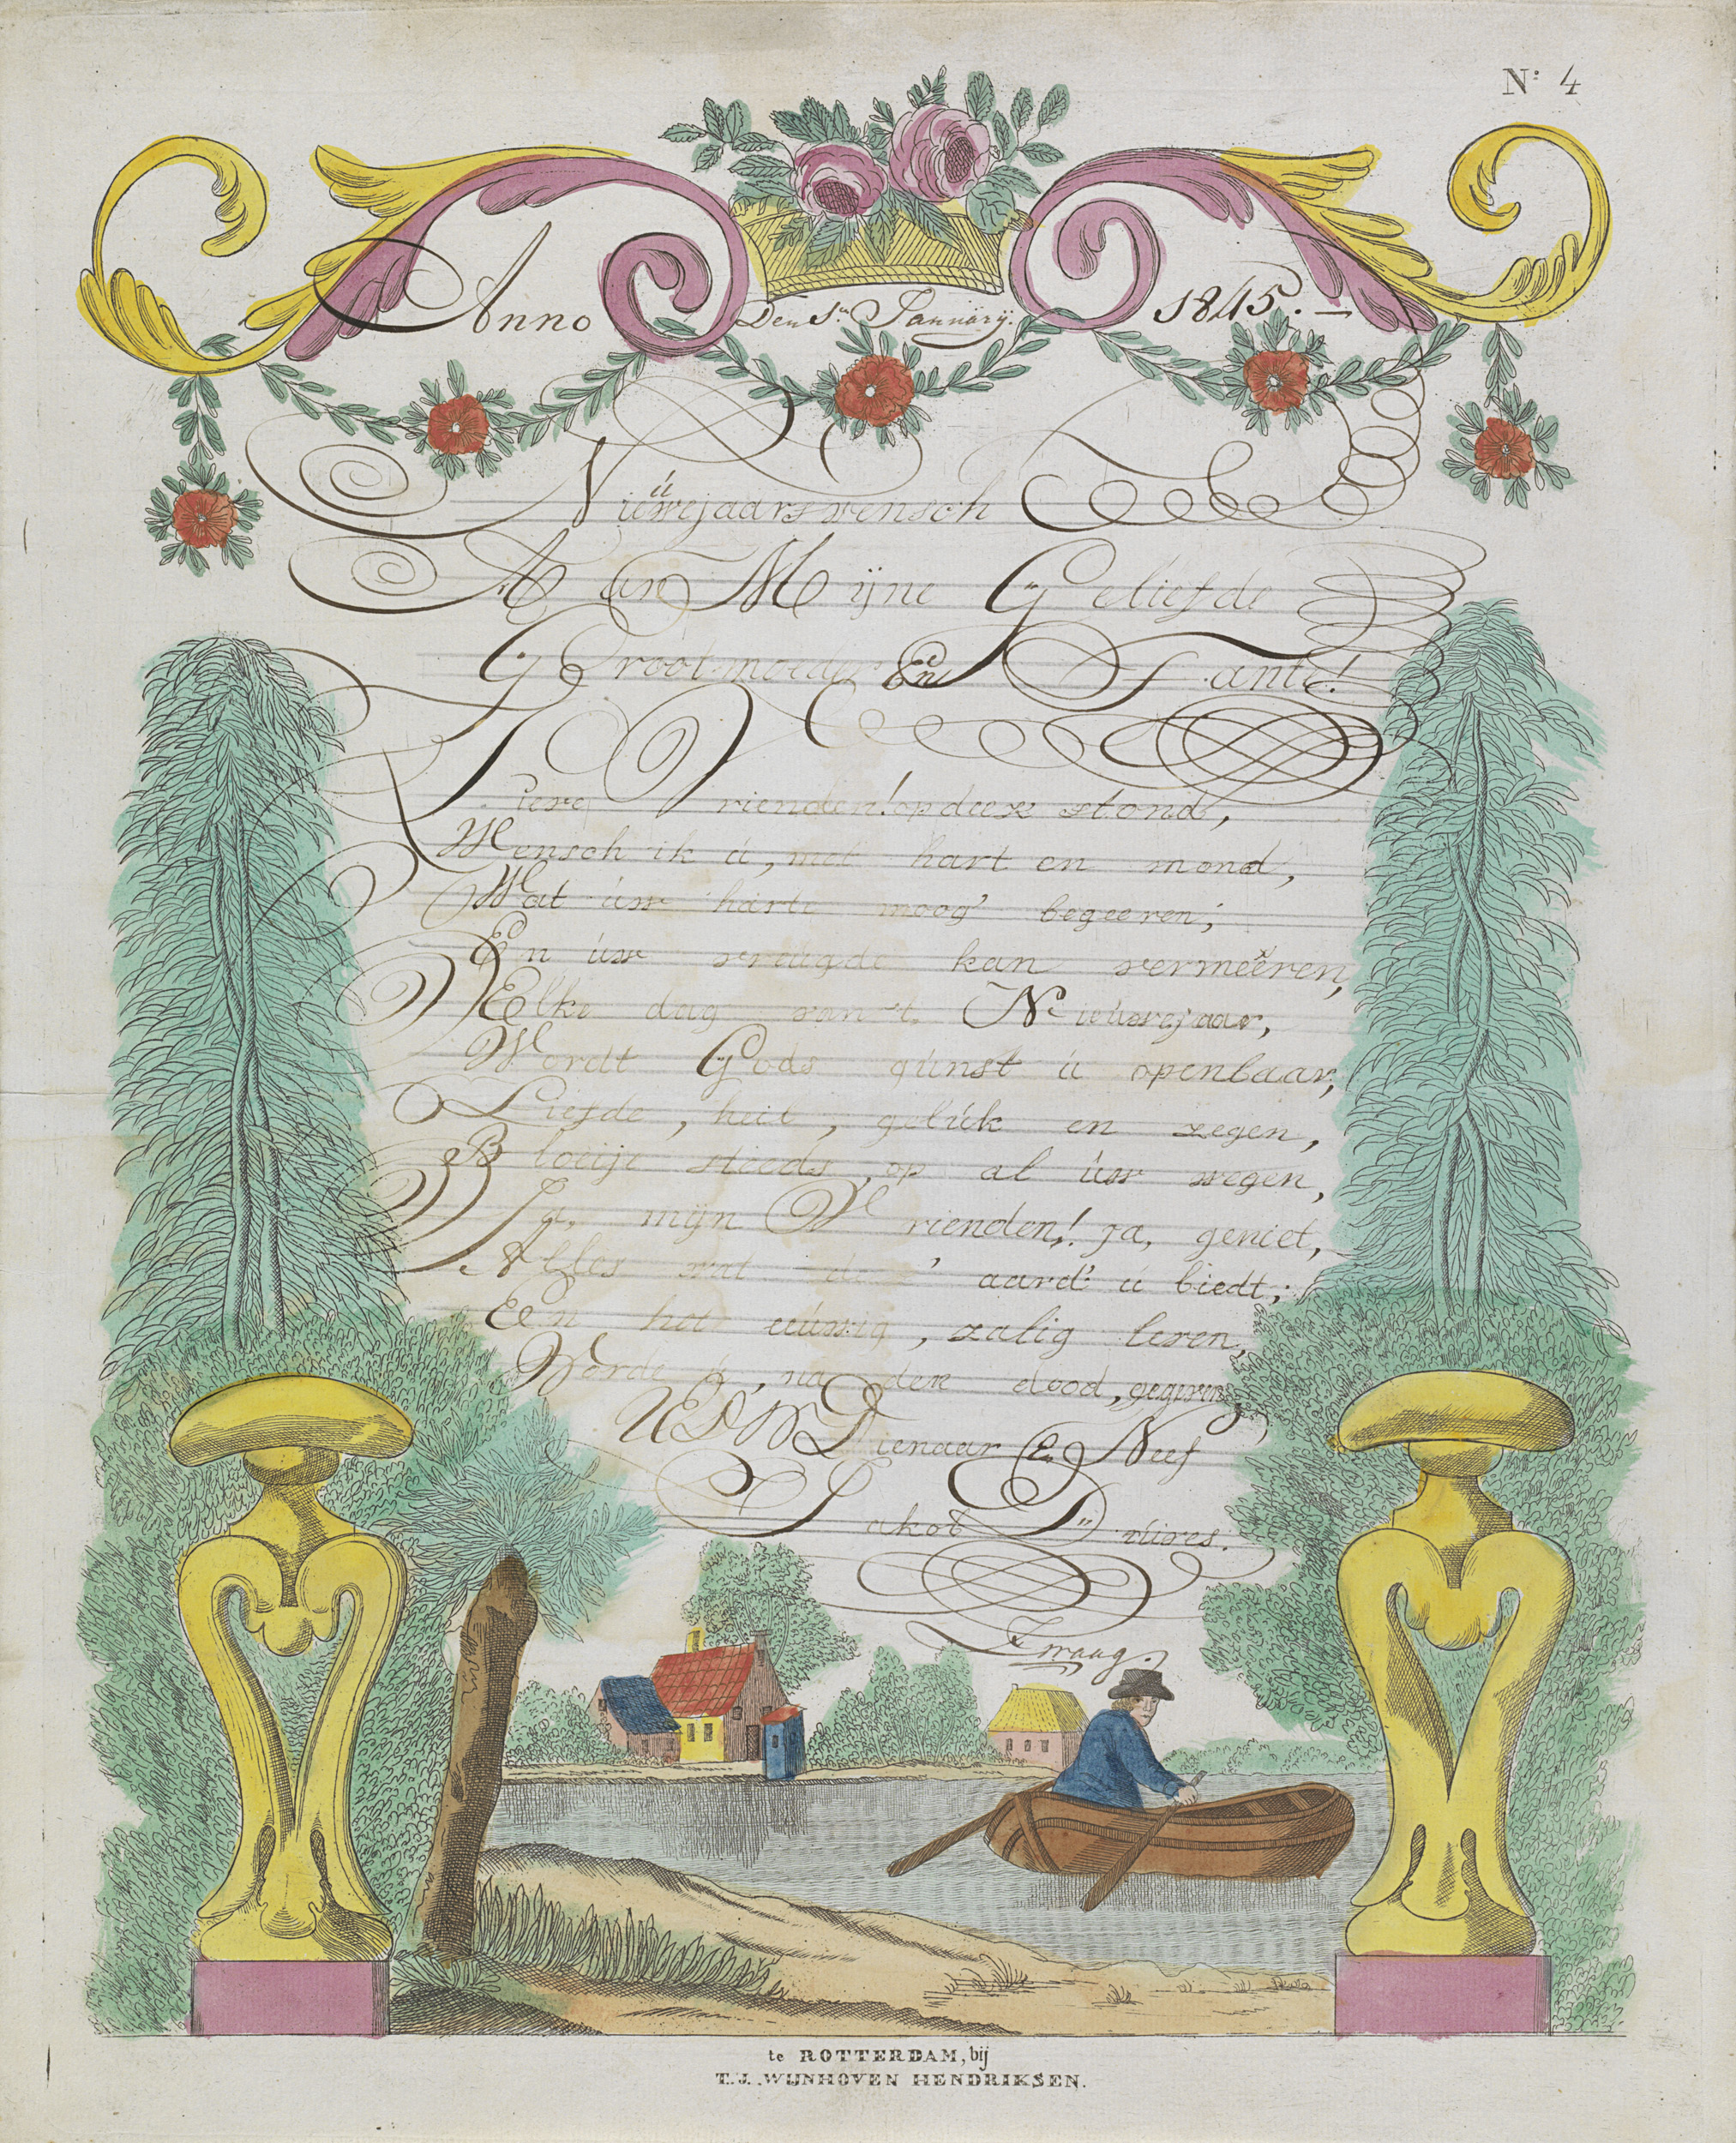 Nº 4
Anno Den 1n Januarij. 1845. —
Niéuwejaarswensch
Aan Mijne Geliefde
Grootmoeder En Tante!
Lieve Vrienden! op deez stond,
Wensch ik ú, met hart en mond,
Wat úw harte moog' begeeren;
En úw vreúgde kan vermeêren,
Elke dag van 't Nieúwejaar,
Wordt Gods gúnst ú openbaar,
Liefde, heil, gelúk en zegen,
Bloeije steeds op al úw wegen,
Ja, mijn Vrienden! ja, geniet,
Alles wat de' aard' ú biedt;
En het eeúwig, zalig leven,
Worde ú, na den dood, gegeven,
UEDWDienaar En Neef
Jakob Druives.
Zwaag.
te ROTTERDAM, bij
T. J. WIJNHOVEN HENDRIKSEN.